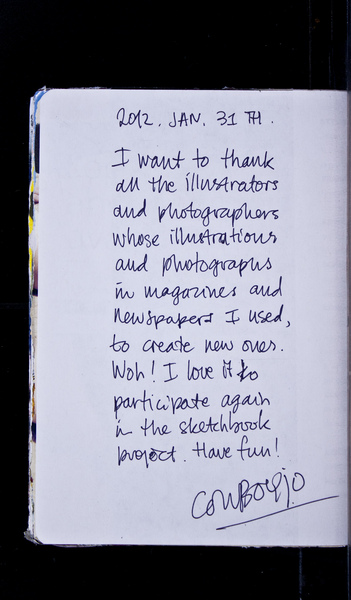 2012. JAN. 31 TH.
I want to thank
all the illustrators
and photographers
whose illustrations
and photographs
in magazines and
newspapers I used,
to create new ones.
Woh! I love it to
participate again
in the sketchbook
project. Have fun!
COWBOYJO